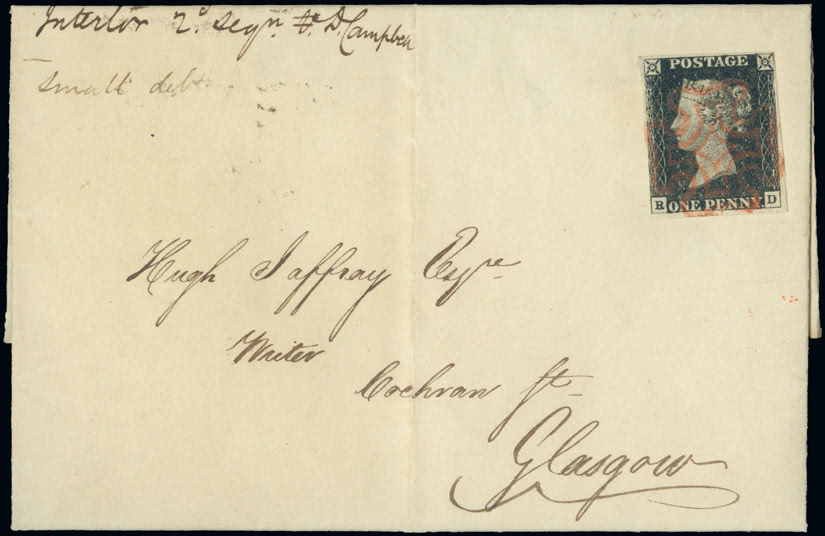 Interlor 2d Seqn. D. Campbell
Small debt
POSTAGE
ONE PENNY
R D
Hugh Jaffray Esqre
Writer
Cochran St
Glasgow